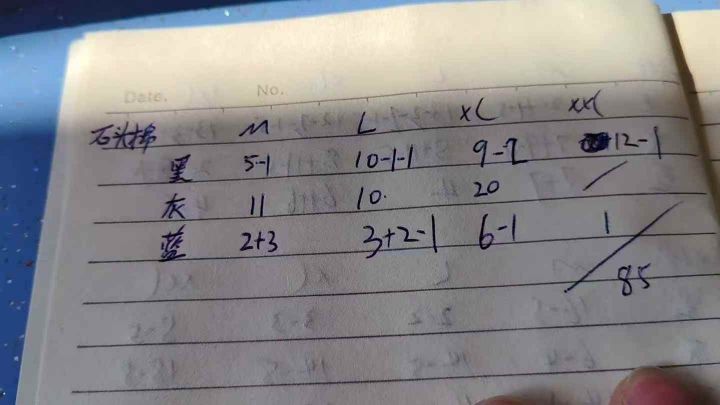 Date. No.
石头棉 M L XL XXL
黑 5-1 10-1-1 9-2 12-1
灰 11 10 20 /
蓝 2+3 3+2-1 6-1 1
85